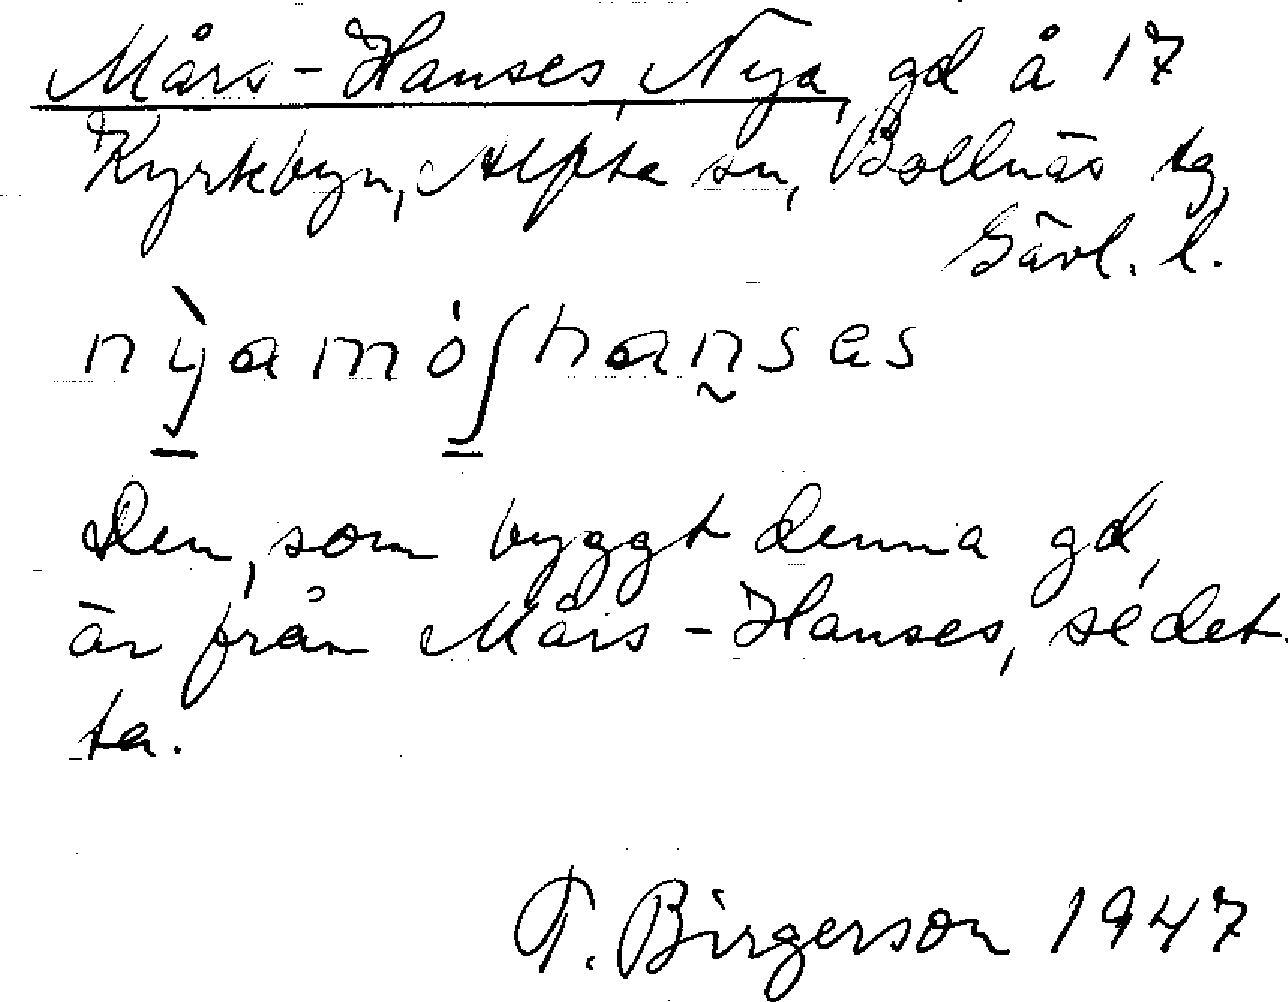 Mårs-Hanses, Nya, gd å 17
Kyrkbyn, Alfta sn, Bollnäs tg,
Gävl. l.
nỳa mȯʃhanses
Den, som byggt denna gd,
är från Mårs-Hanses, se det-
ta.
T. Birgerson 1947